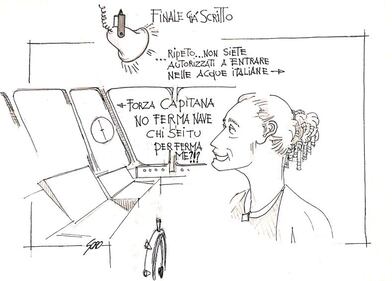 FINALE GIÀ SCRITTO
...RIPETO...NON SIETE
AUTORIZZATI A ENTRARE
NELLE ACQUE ITALIANE→
←FORZA CAPITANA
NO FERMA NAVE
CHI SEI TU
PER FERMA
ME?!?